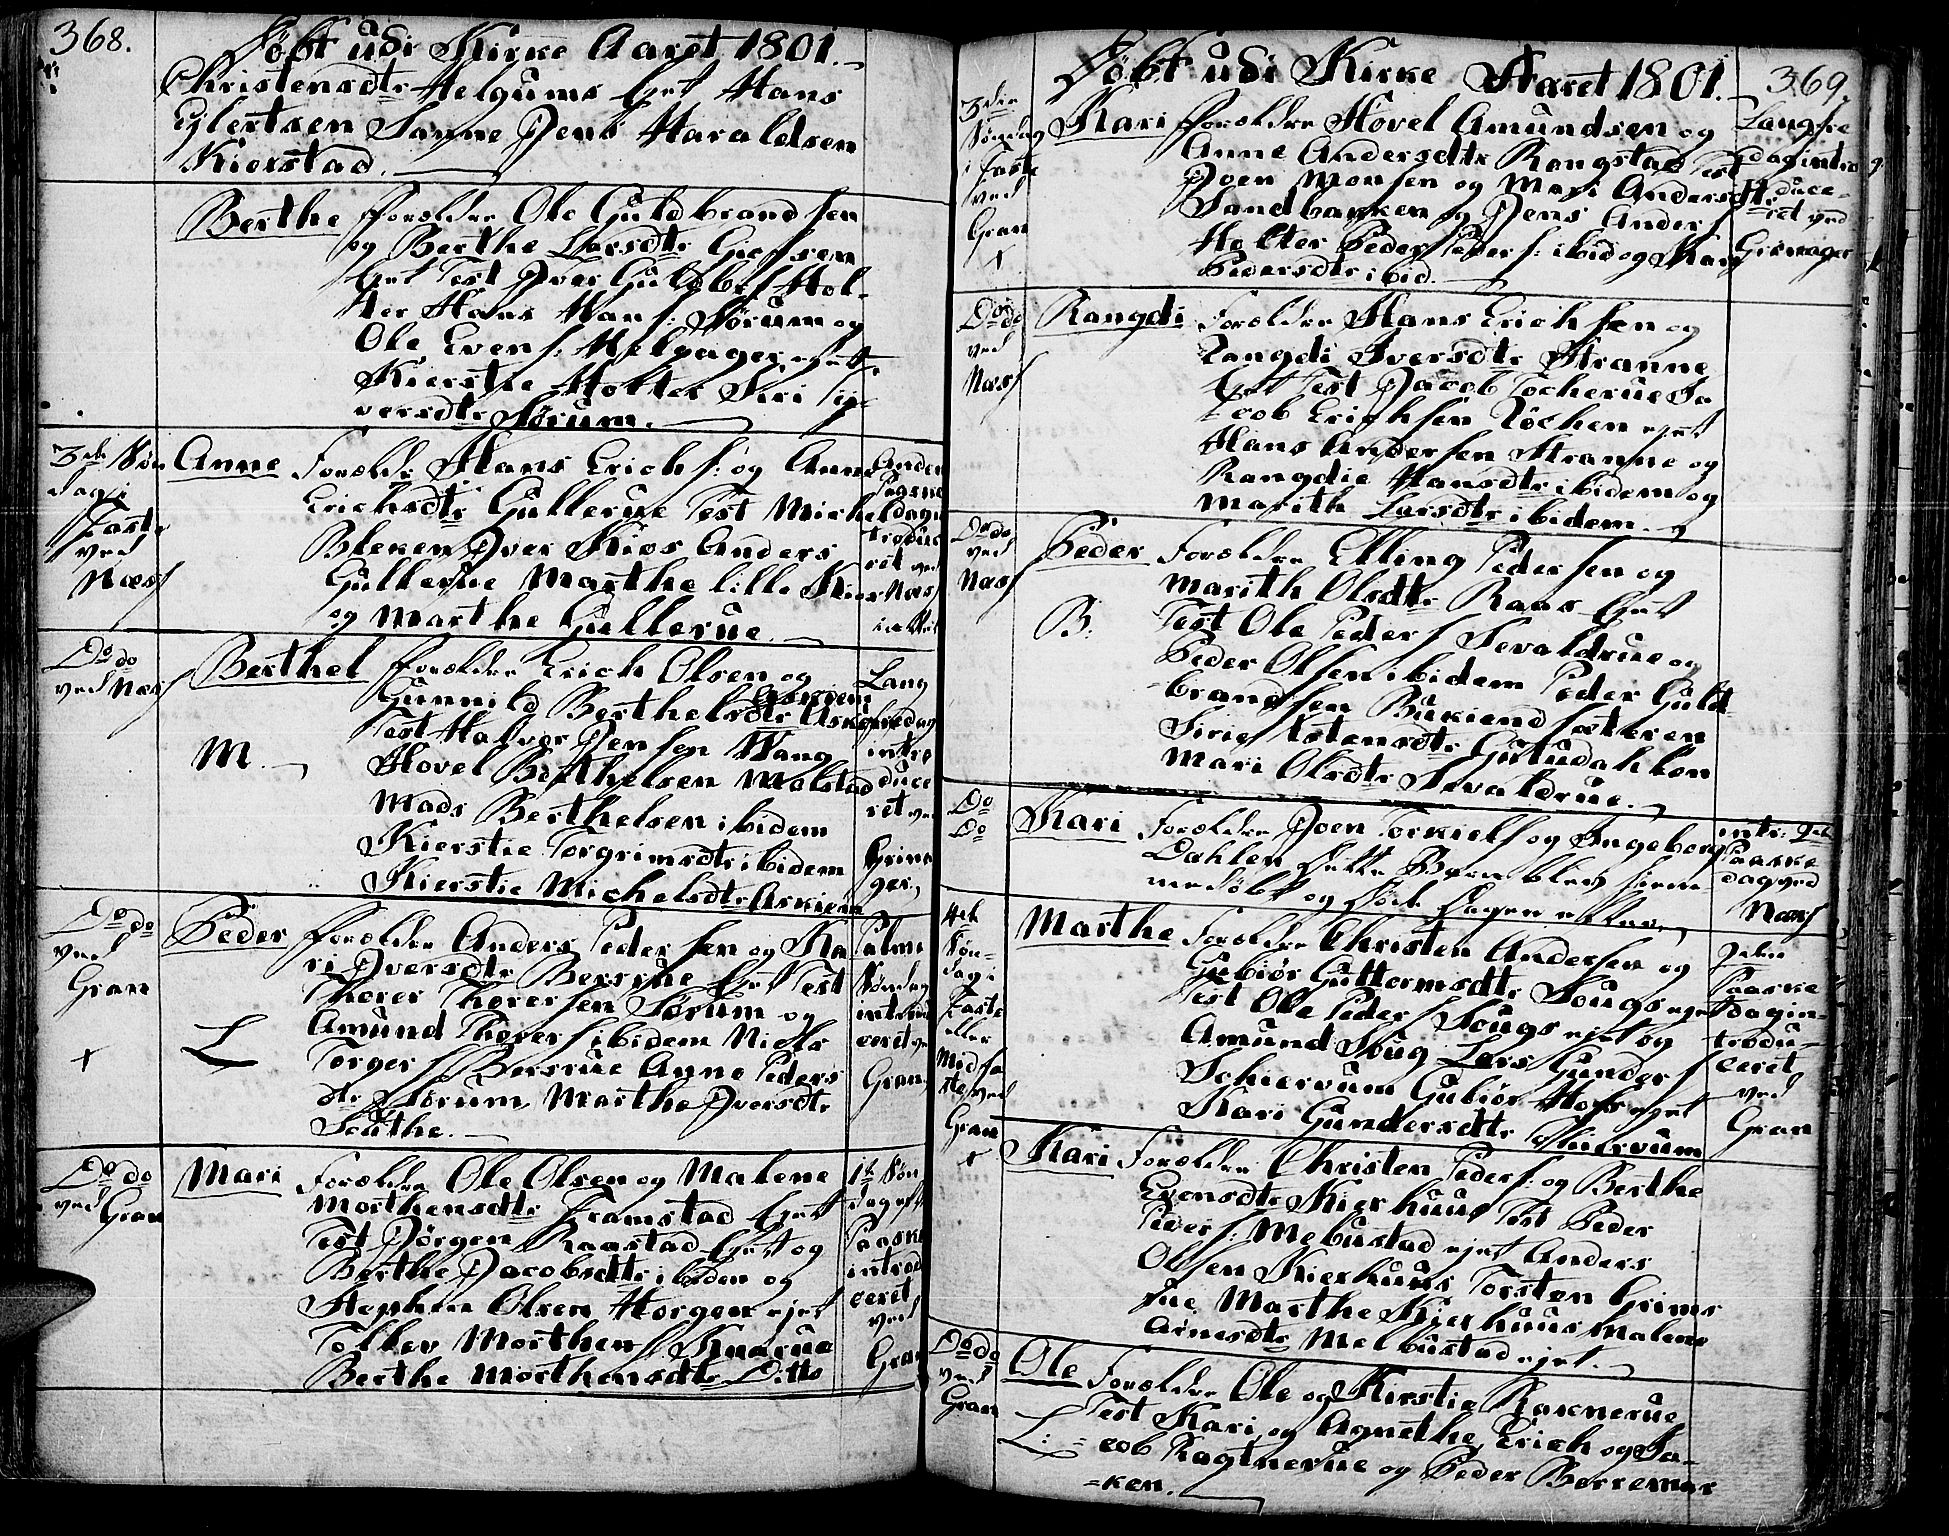 368.
Döbt udi Kirke Aaret 1801.
Christensdtr Helgums Ejet Hans
Eylertsen Sanne Jens Haraldsen
Kierstad.
Berthe Forældre Ole Guldbrandsen
og Berthe Larsdtr
Ejet Test Iver Guldb:s Hol-
ter Hans Hans: Sørum og
Ole Evens: Helgager ejet
Kierstie Holter Siri Sy-
versdtr Sørum.
3die Søn
dag i
Faste
ved
Næss
Anne Forældr Hans Erichs: og Anne
Erichsdtr Gullerue Test Michel
Bleken Iver Kios Anders
Gullerue Marthe lille Kios
og Marthe Gullerue.
Anden
Paaske
dag in
troduc
ret ved
Næss
Do do
ved Næss
Berthel Forældre Erich Olsen og
Gunnild Berthelsdtr Askiem
M.
Test Halvor Jensen Wang
Hovel Berthelsen Molstad
Mads Berthelsen ibidem
Kierstie Torgrimsdtr ibidem
Kierstie Michelsdtr Askiem
Lang
fredag
intro
duce
ret ved
Grina
ger,
Do do
ved
Gran
+
Peder Forældre Anders Pedersen og Ka
ri Iversdtr Bersrue Ejet Test
Thorer Thorersen Sørum og
L
Amund Thorers ibidem Niels
Torgers Bersrue Anne Peders
dtr Sørum Marthe Iversdtr
Scuthe.
Palme
Søndag
introdu
ceret ved
Gran
Do do
ved Gran
Mari Forældre Ole Olsen og Malene
Morthensdtr Framstad Ejet
Test Jørgen Raastad Ejet og
Berthe Jacobsdtr ibidem og
Stephen Olsen Horgen ejet
Tollev Morthens Knarue
Berthe Morthensdtr Ditto
1te Søn
dag eft
Paaske
introd
ceret
ved
Gran
Döbt udi Kirke Aaret 1801. 369.
3die
Søndag
i Faste
ved
Gran
+
Kari Forældre Hovel Amundsen og
Anne Andersdtr Rongstad Test
Joen Monsen og Mari Andersdtr
Sandbakken og Jens Anders
Holter Peder Peders: ibid og Mari
Pedersdtr ibid.
Langfre
dag intro
duce-
ret ved
Grinager
Do do
ved
Næss
Rangdi Forældre Hans Erichsen og
Rangdi Iversdtr Stranne
Ejet Test Jacob Tocherue Ja
cob Erichsen Röchen ejet
Hans Andersen Stranne og
Rangdie Hansdtr ibidem og
Marith Larsdtr ibidem.
Do do
ved
Næss
Peder Forældre Elling Pedersen og
Marith Olsdtr Raas Ejet
B:
Test Ole Peders Sevaldrue og
Peder Olsen ibidem Peder Guld-
brandsen Sæteren
Mari Olsdtr Sevaldrue.
Do
Do
Kari Forældre Joen Torkiels og Ingeborg
Dahlen dette Barn blev hjem-
medöbt og döde Dagen efter.
intr: 2den
Paaske
dag ved
Næss
4de
Søn-
dag i
Faste
eller
Midfa
ste ved
Gran
+
Marthe Forældre Christen Andersen og
Gubiør Guttormsdtr Sougs ejet
Test Ole Peders Sougs ejet og
Amund Soug Lars Gunders
Schiervum Gubiør Hofs ejet
Kari Gundersdtr Skiervum
2den
Paaske
dag in-
trodu-
ceret
ved
Gran
Kari Forældre Christen Peders: og Berthe
Evensdtr Kierhuus Test Peder
Peders: Mebustad ejet Anders
Olsen Kierhuus Torsten Grims
rue Marthe Kierhuus Malene
Arnesdtr Melbustad ejet.
Do do
ved
Gran
Ole Forældre Ole og Kirstie Raknerue
L:
Test Kari og Agnethe, Erich og Ja-
cob Ragtnerue og Peder Berremar
-ken.